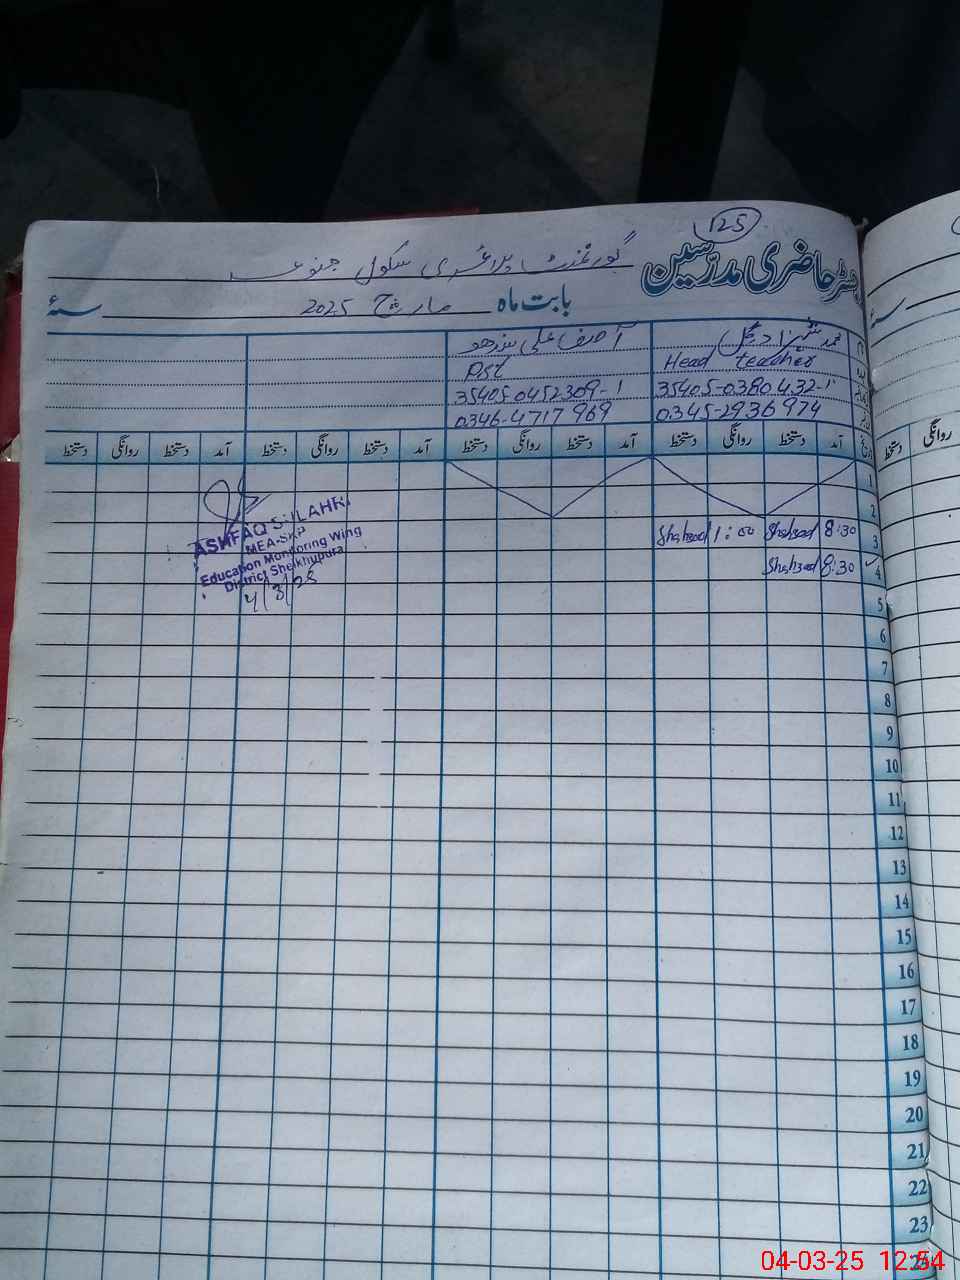 125
رجسٹر حاضری مدرسین
گورنمنٹ پرائمری سکول
بابت ماہ مارچ 2025 سنہ
محمد شہزاد گل
آصف علی سندھو
Head teacher
PST
35405-0380432-1
35405-0452309-1
0345-2936974
0346-4717969
آمد دستخط روانگی دستخط آمد دستخط روانگی دستخط آمد دستخط روانگی دستخط آمد دستخط روانگی دستخط
روانگی دستخط
سنہ
1
2
3 8:30 Shahzad 1:00 Shahzad
4 8:30 Shahzad
ASHFAQ
MEA-SKP
Education Monitoring Wing
District Sheikhupura
4/3/25
5
6
7
8
9
10
11
12
13
14
15
16
17
18
19
20
21
22
23
24
04-03-25 12:54